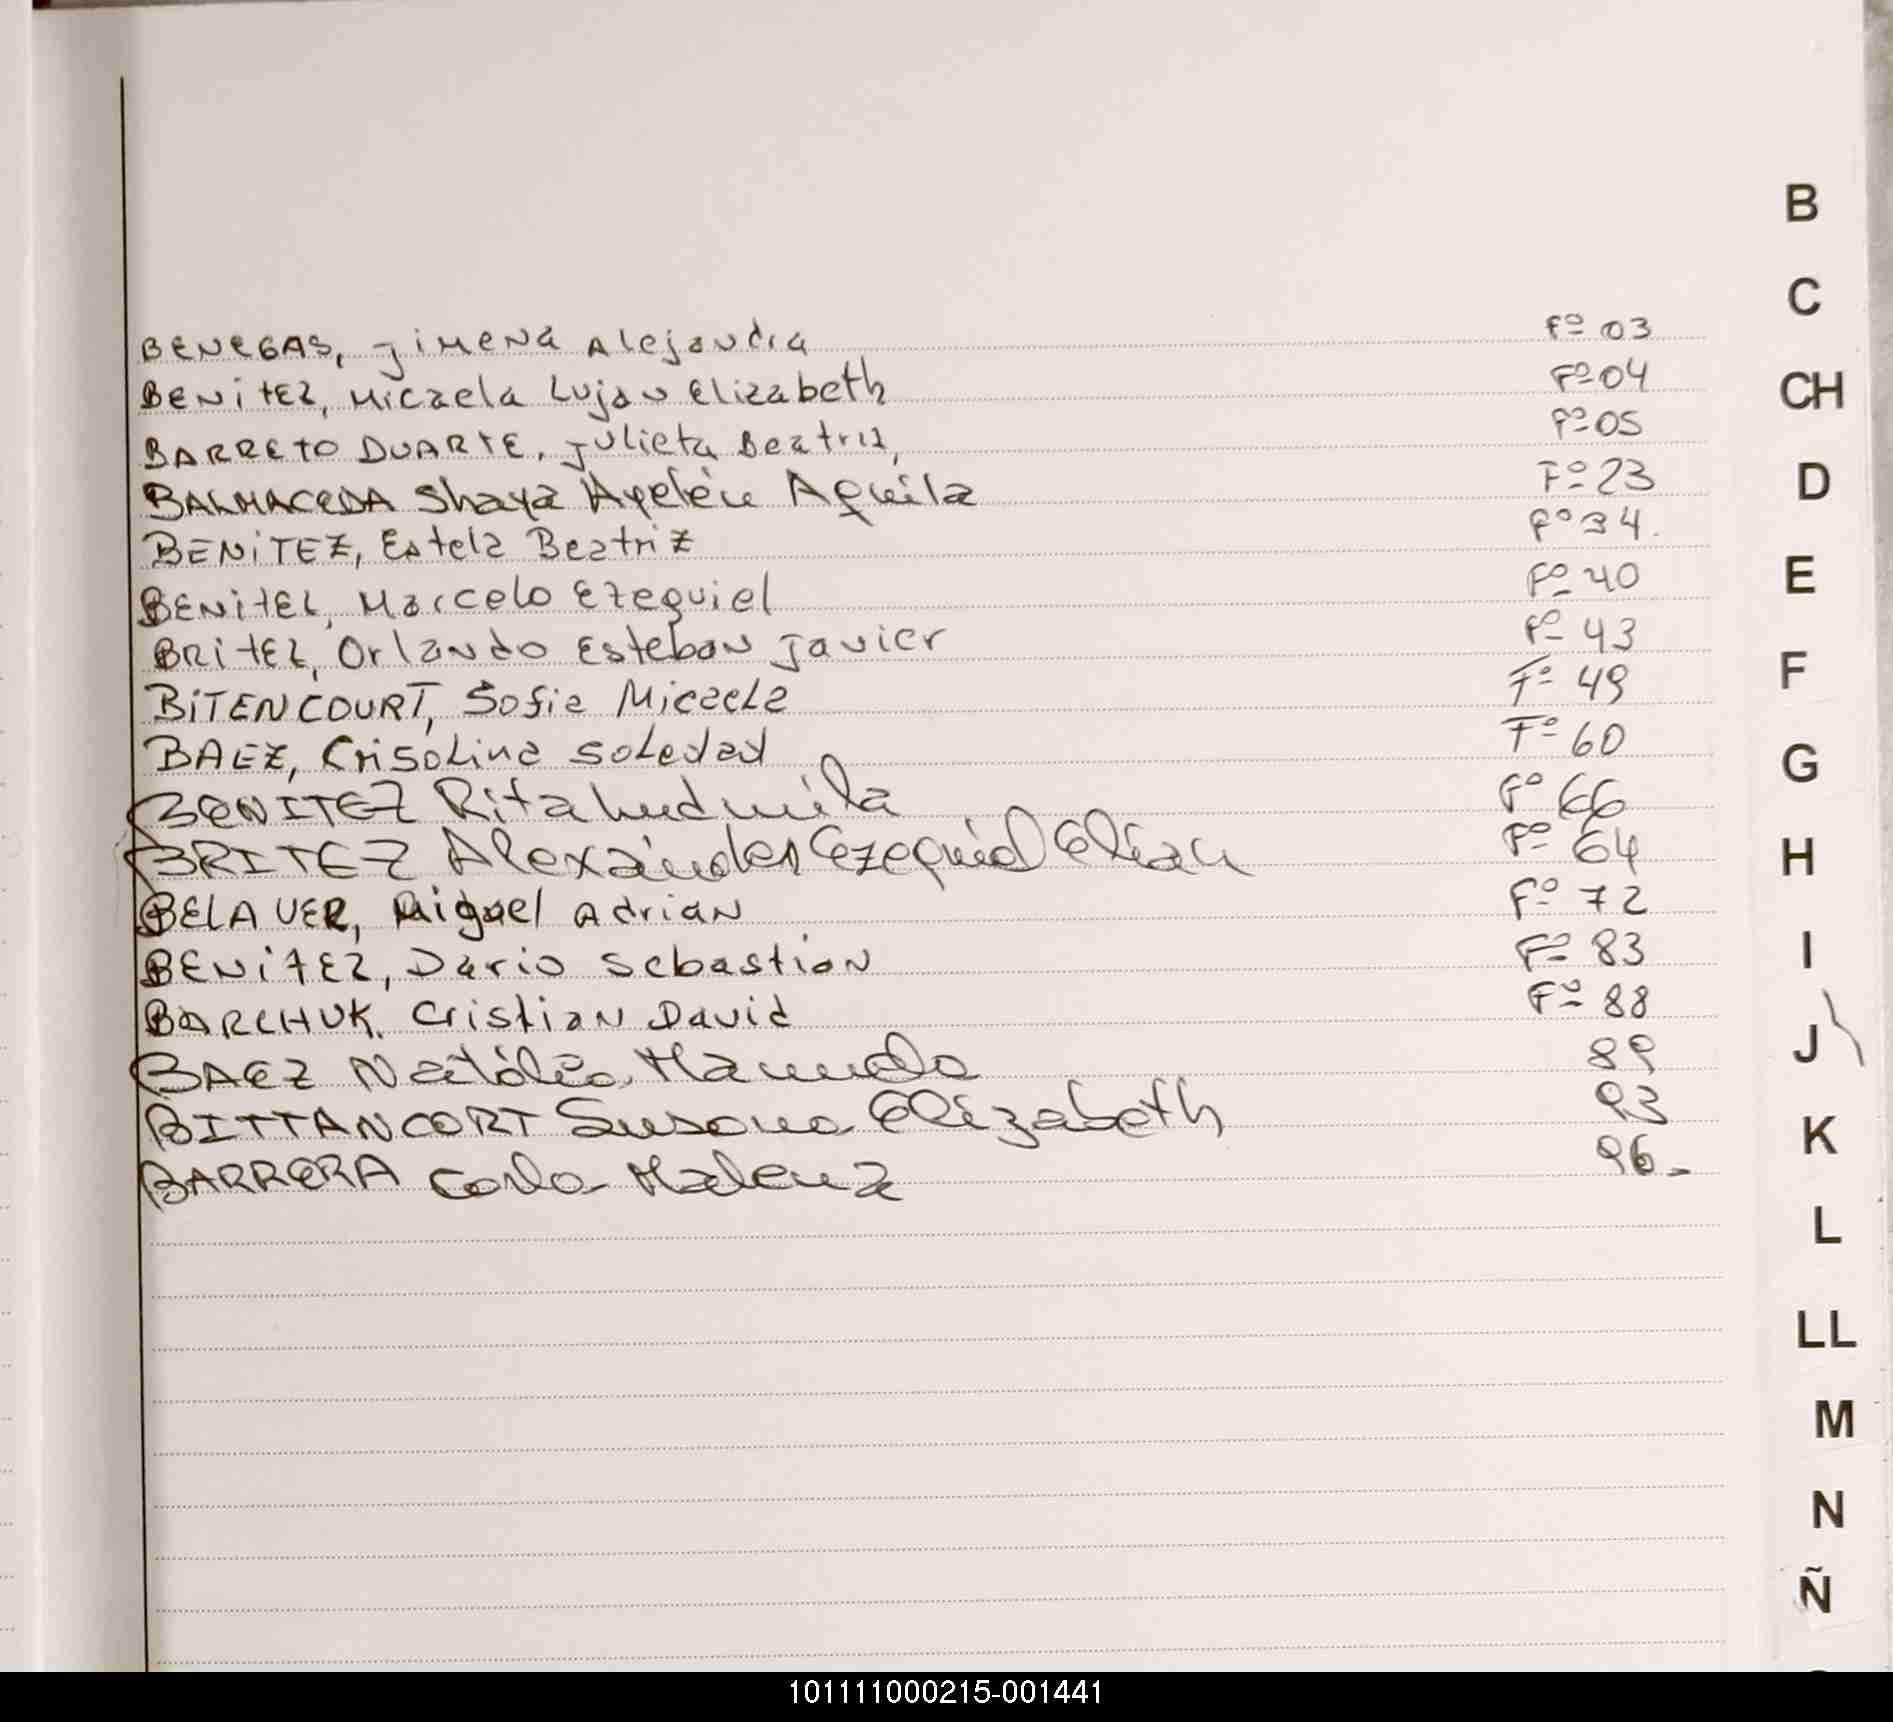 BENEGAS, Jimena Alejandra Fº 03
BENITEZ, Micaela Lujan Elizabeth Fº 04
BARRETO DUARTE, Julieta Beatriz, Fº 05
BALMACEDA Shaya Ayelén Aquila Fº 23
BENITEZ, Estela Beatriz Fº 34.
BENITEZ, Marcelo Ezequiel Fº 40
BRITEZ, Orlando Esteban Javier Fº 43
BITENCOURT, Sofia Micaela Fº 49
BAEZ, Crisolina Soledad Fº 60
BENITEZ Rita Ludmila Fº 66
BRITEZ Alexander Ezequiel Elian Fº 64
BELAVER, Miguel Adrian Fº 72
BENITEZ, Dario Sebastian Fº 83
BARCHUK, Cristian David Fº 88
BAEZ Natalia Manuela 89
BITTANCORT Susana Elizabeth 93
BARRERA Carla Malena 96-
B
C
CH
D
E
F
G
H
I
J
K
L
LL
M
N
Ñ
101111000215-001441